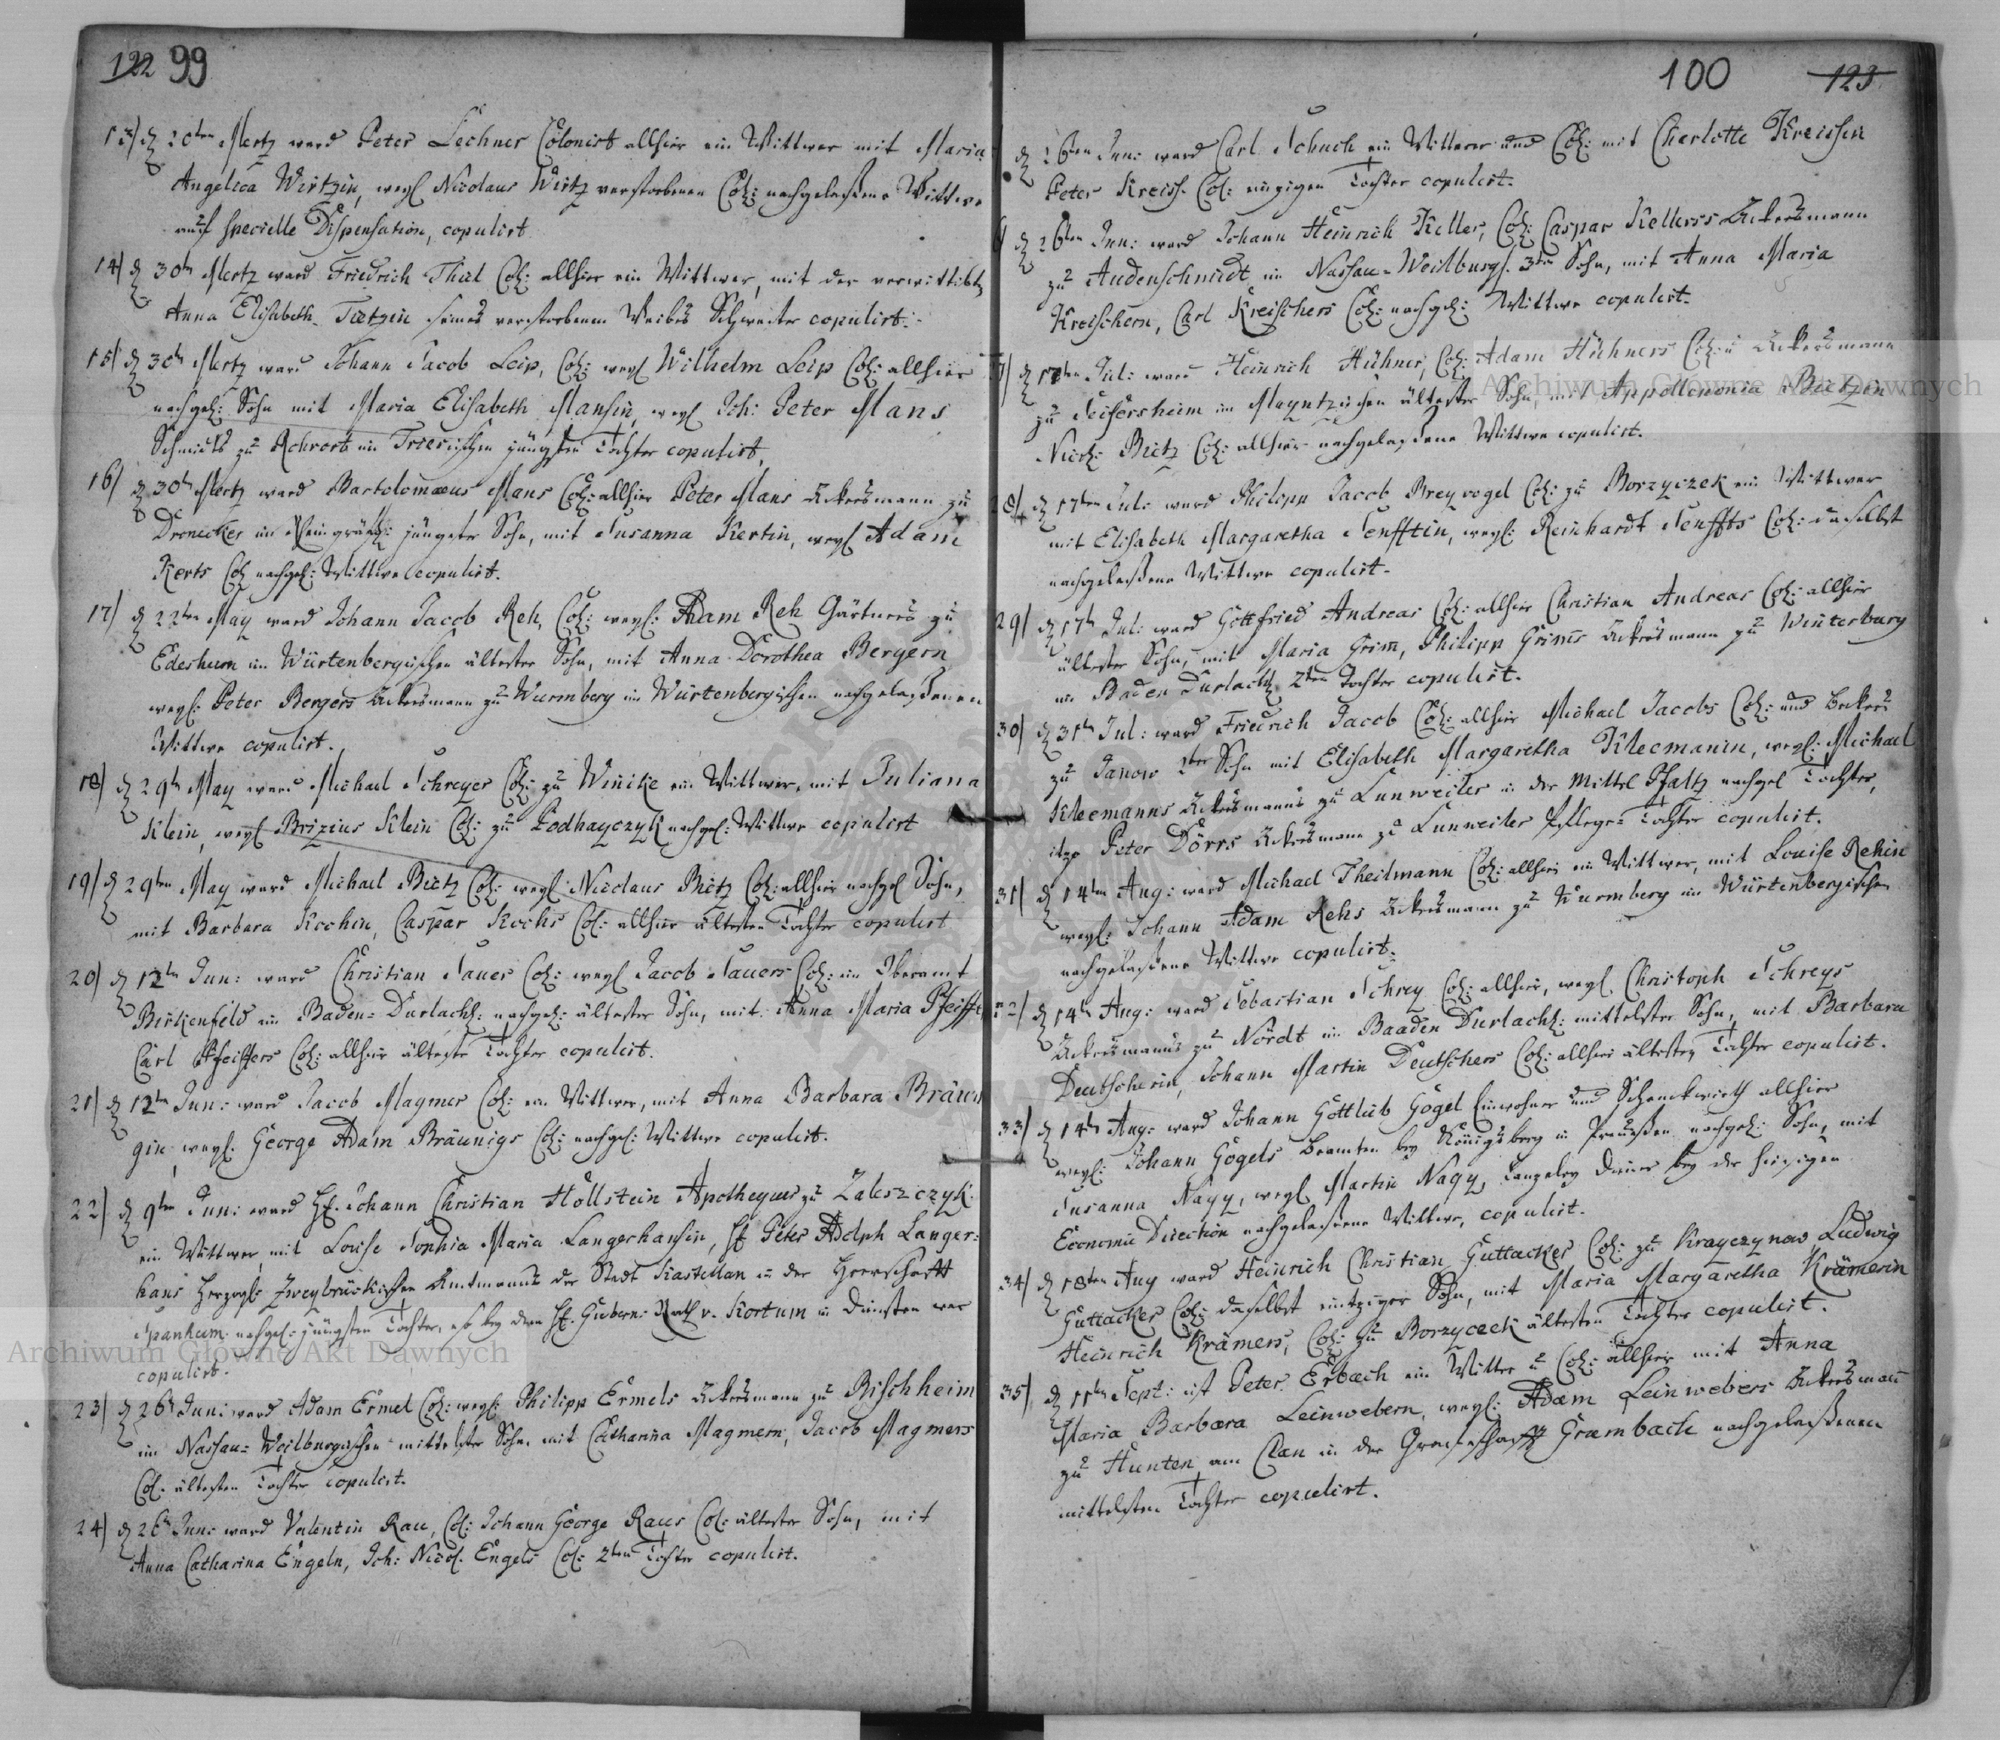 122 99
13) d 20ten Mertz ward Peter Lechner Colonist allhier ein Wittwer mit Maria
Angelica Wirtzin, weyl Nicolaus Wirtz verstorbenen Col: nachgelaßene Wittwe
auf specielle Dispensation, copulirt
14) d 30tn Mertz ward Friedrich Thiel Col: allhier ein Wittwer, mit der verwittibte
Anna Elisabeth seines verstorbenen Weibes Schwester copulirt.
15) d 30tn Mertz ward Johann Jacob Leip, Col: weyl Wilhelm Leip Col: allhier
nachgel: Sohn mit Maria Elisabeth Mansin, weyl Joh: Peter Mans
Schmidts zu Rohrort im Trierischen jüngsten Tochter copulirt,
16) d 30tn Mertz ward Bartolomaeus Mans Col: allhier Peter Mans Ackersmann zu
Dronecker im Rheingräfl: jüngster Sohn, mit Susanna Kertin, weyl Adam
Kerts Col nachgel: Wittwe copulirt.
17) d 22ten May ward Johann Jacob Reh, Col: weyl: Adam Reh Gärtners zu
im Würtenbergischen ältester Sohn, mit Anna Dorothea Bergern
weyl: Peter Bergers Ackersmann zu Wurmberg im Würtenbergischen nachgelaßenen
Wittwe copulirt.
18) d 29tn May ward Michael Schreyer Col: zu Winike ein Wittwer, mit Juliana
Klein, weyl Brizius Klein Col: zu Podhayczyk nachgel: Wittwe copulirt
19) d 29ten May ward Michael Bietz Col: weyl: Nicolaus Bietz Col: allhier nachgel Sohn,
mit Barbara Kochin, Caspar Kochs Col: allhier ältesten Tochter copulirt
20) d 12tn Jun: ward Christian Sauer Col: weyl Jacob Sauers Col: im Oberamt
Birkenfeld im Baden-Durlachl: nachgel: ältester Sohn, mit Anna Maria Pfeiffe
Carl Pfeiffers Col: allhier älteste Tochter copulirt.
21) d 12tn Jun: ward Jacob Magmer Col: ein Wittwer, mit Anna Barbara Bräun
gin, weyl: George Adam Bräunigs Col: nachgel: Wittwe copulirt.
22) d 9ten Jun: ward H. Johann Christian Hollstein Apothequer zu Zaleszczyk
ein Wittwer, mit Louise Sophia Maria Langerhansin, H Peter Adolph Langer=
hans Herzogl: Zweybrückischen Amtmanns der Stadt Kastellan in der Herrschafft
nachgel: jüngsten Tochter, so bey dem H. Gubern: Rath v. Kortum in Diensten war
copulirt.
23) d 26t Jun: ward Adam Ermel Col: weyl: Philipp Ermels Ackersmann zu Bischheim
im Nassau= Weilburgischen mittelster Sohn, mit Catharina Magmern, Jacob Magmers
Col: ältesten Tochter copulirt.
24) d 26t Jun: ward Valentin Rau, Col: Johann George Raus Col: ältester Sohn, mit
Anna Catharina Engeln, Joh: Nicol. Engels Col: 2ten Tochter copulirt.
100 123
d 26ten Jun: ward Carl Schuch ein Wittwer und Col: mit Charlotte Kreissin
Peter Kreiss. Col: einzigen Tochter copulirt.
d 26ten Jun: ward Johann Heinrich Keller, Col: Caspar Kellers Ackersmann
zu Audenschmidt im Nassau-Weilburgl. 3ten Sohn, mit Anna Maria
Kreischern, Carl Kreischers Col: nachgel: Wittwe copulirt.
d 17ten Jul: ward Heinrich Hühner, Col: Adam Hühners Col: u Ackersmann
zu Seifersheim im Mayntzischen ältester Sohn, mit Appollononia Bietzen
Nicol: Bietz Col: allhier nachgelaßene Wittwe copulirt.
28) d 17ten Jul: ward Philipp Jacob Breyvogel Col: zu Borzyczek ein Wittwer
mit Elisabeth Margaretha Senfftin, weyl: Reinhardt Senffts Col: daselbst
nachgelaßene Wittwe copulirt.
29) d 17tn Jul: ward Gottfried Andreas Col: allhier Christian Andreas Col: allhier
ältester Sohn, mit Maria Grim, Philipp Grims Ackersmann zu Winterburg
im Baden Durlachl 2ten Tochter copulirt.
30) d 31tn Jul: ward Friedrich Jacob Col: allhier Michael Jacobs Col: und Beckers
zu Janow 2ter Sohn mit Elisabeth Margaretha Kleemanin, weyl: Michael
Kleemanns Ackersmanns zu Lunweiler in der Mittel Pfaltz nachgel Tochter,
itzo Peter Dörrs Ackersmann zu Lunweiler Pflege=Tochter copulirt.
31) d 14ten Aug: ward Michael Theilmann Col: allhier ein Wittwer, mit Louise Rehin
weyl: Johann Adam Rehs Ackersmann zu Wurmberg im Würtenbergischen
nachgelaßene Wittwe copulirt.
32) d 14tn Aug: ward Sebastian Schrey Col: allhier, weyl. Christoph Schreys
Ackersmanns zu Nördt im Baaden Durlachl: mittelster Sohn, mit Barbara
Deutscherin, Johann Martin Deutschers Col: allhier ältesten Tochter copulirt.
33) d 14tn Aug: ward Johann Gottlieb Gogel Einwohner und Schenckwirth allhier
weyl: Johann Gogels Beamten bey Königsberg in Preußen nachgel: Sohn, mit
Susanna Nagy, weyl Martin Nagy, Canzeley Diener bey der hiesigen
Economie Direction nachgelaßene Wittwe, copulirt.
34) d 18ten Aug ward Heinrich Christian Guttacker Col: zu Krayczynow Ludwig
Guttacker Col: daselbst eintziger Sohn, mit Maria Margaretha Krämerin
Heinrich Krämers, Col: zu Borzyceck ältesten Tochter copulirt.
35) d 11ten Sept: ist Peter Erbach ein Wittwer u Col: allhier mit Anna
Maria Barbara Leinwebern, weyl: Adam Leinwebers Ackersmann
zu Hunten am Clan in der Graffschafft Grumbach nachgelaßenen
mittelsten Tochter copulirt.
Archiwum Główne Akt Dawnych
Archiwum Główne Akt Dawnych